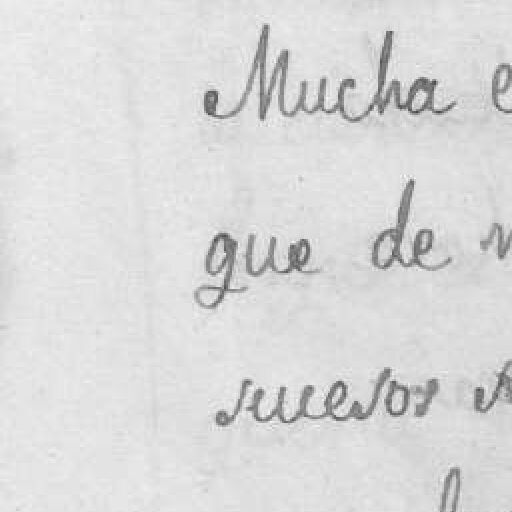 Mucha e
que de
suesos